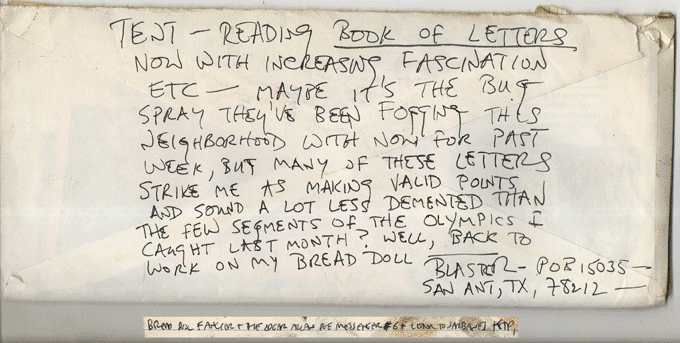 TENT — READING BOOK OF LETTERS
NOW WITH INCREASING FASCINATION
ETC — MAYBE IT'S THE BUG
SPRAY THEY'VE BEEN FOGGING THIS
NEIGHBORHOOD WITH NOW FOR PAST
WEEK, BUT MANY OF THESE LETTERS
STRIKE ME AS MAKING VALID POINTS
AND SOUND A LOT LESS DEMENTED THAN
THE FEW SEGMENTS OF THE OLYMPICS I
CAUGHT LAST MONTH? WELL, BACK TO
WORK ON MY BREAD DOLL
BLASTER — POB 15035 —
SAN ANT, TX, 78212 —
BREAD DOLL FANCIER + THE EDGAR ALLAN POE MESSENGER #6 +